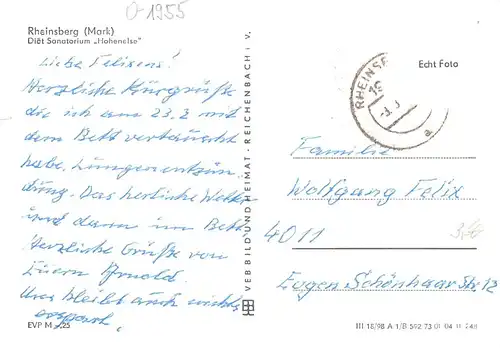 O-1955
Rheinsberg (Mark)
Diät Sanatorium „Hohenelse"
Liebe Felixens!
Herzliche Kurgrüße
die ich am 23.2 mit
dem Bett vertauscht
habe. Lungenentzün-
dung. Das herrliche Wetter
und dann im Bett
Herzliche Grüße von
Euern Arnold.
Uns bleibt auch nichts
erspart.
EVP M -,25
VEB BILD UND HEIMAT · REICHENBACH i. V.
Echt Foto
RHEINSB
Familie
Wolfgang Felix
4011
Eugen Schönhaar Str. 12
III 18/98 A 1/B 592 73 01 04